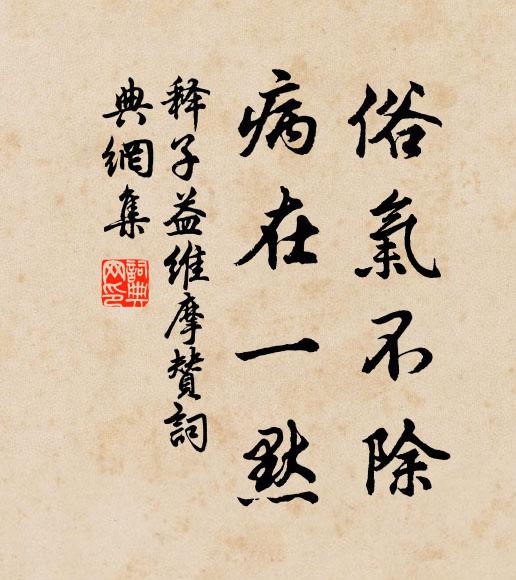 俗氣不除
病在一默
释子益维摩赞詞
典網集
詞典網印